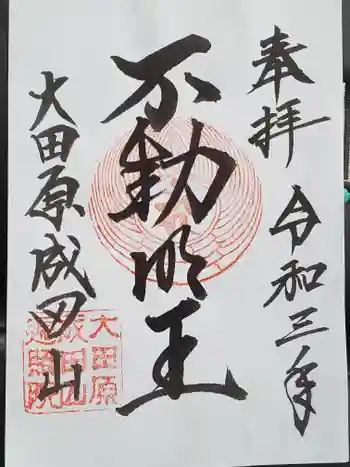 奉拝 令和三年
不動明王
大田原成田山
大田原
成田山
遍照院